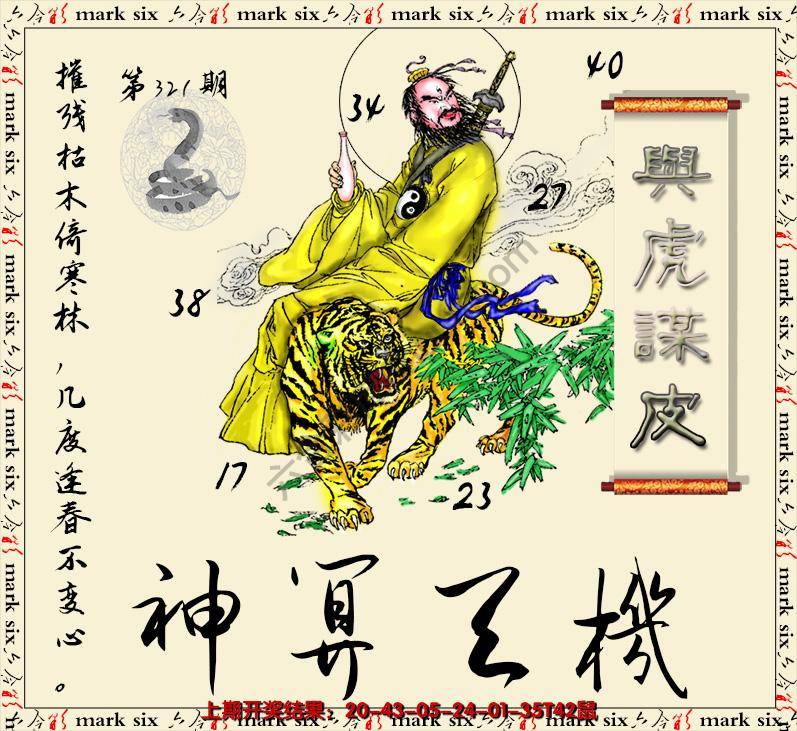 mark six 六合彩 mark six 六合彩 mark six 六合彩 mark six 六合彩 mark six
第321期
摧残枯木倚寒林，几度逢春不变心。
34
40
27
38
17
23
與虎謀皮
神算天機
上期开奖结果：20-43-05-24-01-35T42鼠